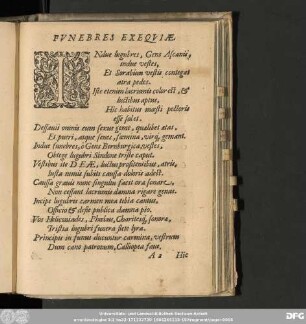 FVNEBRES EXEQVIÆ
INdue lugubres, Gens Ascanii,
indue vestes,
Et Sorabium vestis contegat
atra pedes.
Iste etenim lacrumis color est, &
luctibus aptus,
Hic habitus mæsti pectoris
esse solet.
Dessauii omnis eum sexus gens, qualibet ætas,
Et pueri, atque senes, fœmina, virq, gemant.
Indue funebres, ô Gens Bernburgica, vestes,
Obtege lugubri Sindone triste caput.
Vestimini ite DEÆ, luctus profitentibus, atris,
Iusta nimis subitò caussa doloris adest.
Caussa gravis nunc singultu facit ora sonare
Non cessent lacrumis damna rigare genas.
Incipe lugubris carmen mea tibia cantus,
Officio & desle publica damna pio.
Vos Heliconiades, Phœbus, Charitesq, sonora,
Tristia lugubri funera flete lyra.
Principis in funus ducuntur carmina, vestrum
Dum cano patronum, Calliopea faue.
A 2 Hic